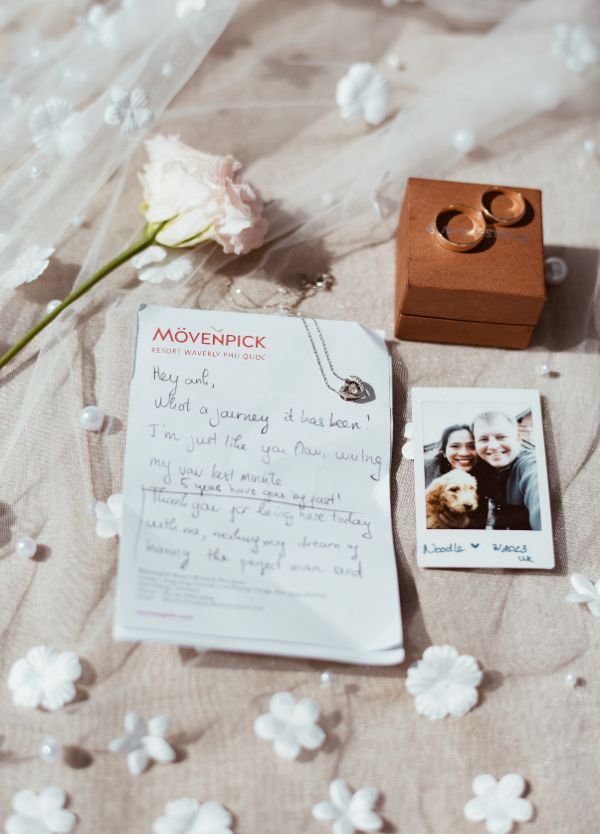 MÖVENPICK
RESORT WAVERLY PHU QUOC
Hey anh,
What a journey it has been!
I'm just like you now, writing
my vow last minute
5 years have gone by fast!
Thank you for being here today
with me, making my dream of
having the perfect man and
Noodle ♥ 2023
UK